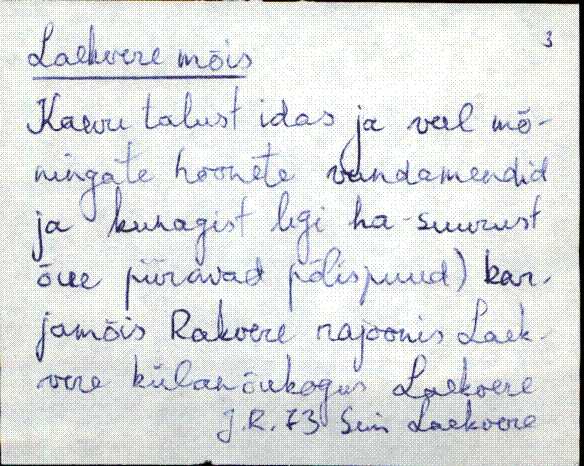 3
Laekvere mõis
Kaevu talust idas ja veel mõ-
ningate hoonete vundamendid
ja kunagist ligi ha-suurust
õue piiravad põlispuud) kar-
jamõis Rakvere rajoonis Laek-
vere külanõukogus Laekvere
J.R. 73 Sim Laekvere